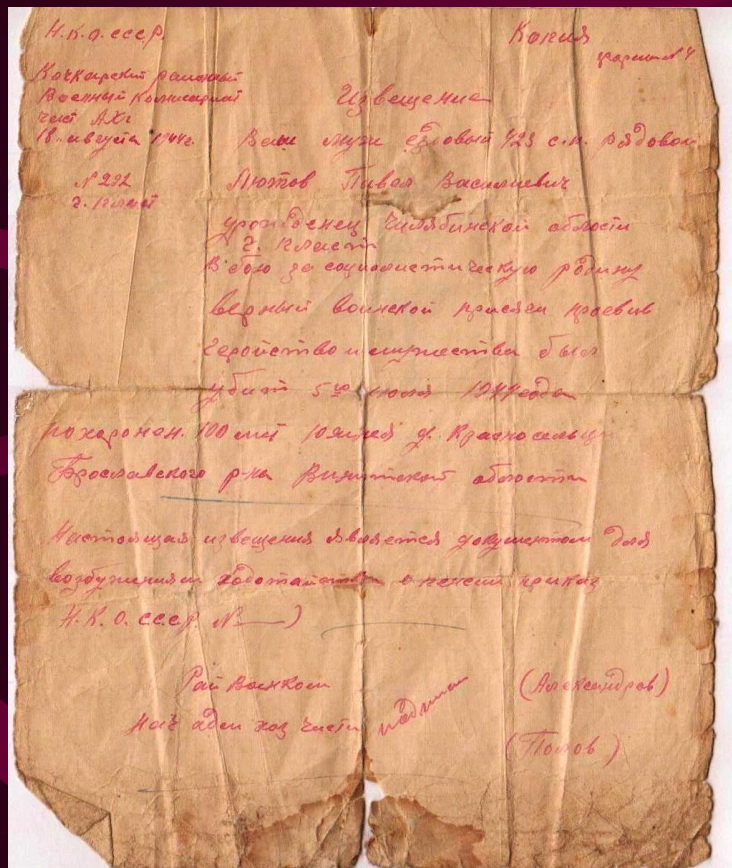 Н.К.О. СССР.
Копия
форма № 4
Кочкарский районный
Военный Комиссариат
част АХг
18 августа 1944г.
№ 292
г. Пласт
Извещение
Ваш муж ездовый 423 с.п. рядовой
Лютов Павел Василиевич
уроженец Челябинской области
г. Пласт
В бою за социалистическую родину
верный воинской присяги проевив
геройство и мужества был
убит 5го 1944 года
похоронен. 100 мет юяжней д. Красносельци
Брославского р-на Винитской области
Настоящая извещения является документом для
возбуждения о пенсии приказ
Н.К.О. СССР №—)
Рай Воинком (Александров)
Нач адм хоз части
(Попов)